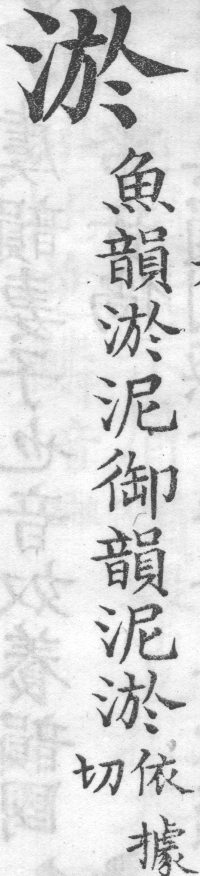 淤
魚韻淤泥御韻泥淤
依據
切